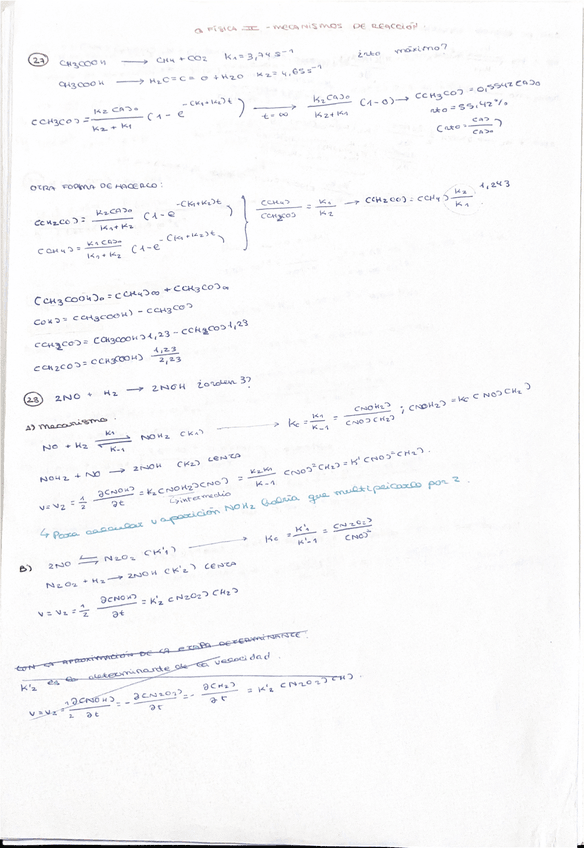 Q FÍSICA II - MECANISMOS DE REACCIÓN
27) CH3COOH → CH4 + CO2 K1 = 3,74 s⁻¹ ¿rto máximo?
CH3COOH → H2C=C=O + H2O K2 = 4,65 s⁻¹
[CH3CO] = K2[A]0 / K2 + K1 (1 - e^-(K1+K2)t) → t=∞ K2[A]0 / K2+K1 (1-0) → [CH3CO] = 0,5542[A]0
rto = 55,42%
(rto = [A] / [A]0)
OTRA FORMA DE HACERLO:
[CH2CO] = K2[A]0 / K1+K2 (1 - e^-(K1+K2)t)
[CH4] = K1[A]0 / K1+K2 (1 - e^-(K1+K2)t)
[CH4] / [CH2CO] = K1 / K2 → [CH2CO] = [CH4] K2 / K1 1,243
[CH3COOH]0 = [CH4]∞ + [CH3CO]∞
[CH4] = [CH3COOH] - [CH3CO]
[CH2CO] = [CH3COOH] 1,23 - [CH2CO] 1,23
[CH2CO] = [CH3COOH] 1,23 / 2,23
28) 2NO + H2 → 2NOH ¿orden 3?
A) Mecanismo:
NO + H2 ⇌ NOH2 (K1) K1 K-1 → Kc = K1 / K-1 = [NOH2] / [NO][H2] ; [NOH2] = Kc[NO][H2]
NOH2 + NO → 2NOH (K2) Lenta
V = V2 = 1/2 ∂[NOH] / ∂t = K2[NOH2][NO] = K2K1 / K-1 [NO]²[H2] = K'[NO]²[H2].
↳ intermedio
↳ Para calcular v aparición NOH2 habría que multiplicarlo por 2.
B) 2NO ⇌ N2O2 (K'1) → Kc = K'1 / K'-1 = [N2O2] / [NO]²
N2O2 + H2 → 2NOH (K'2) Lenta
V = V2 = 1/2 ∂[NOH] / ∂t = K'2 [N2O2][H2]
CON LA APROXIMACIÓN DE LA ETAPA DETERMINANTE.
K'2 es la determinante de la velocidad.
V = V2 = 1/2 ∂[NOH] / ∂t = - ∂[N2O2] / ∂t = - ∂[H2] / ∂t = K'2 [N2O2][H].